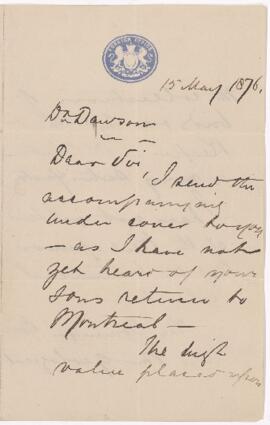 15 May 1876.
Dr Dawson
Dear Sir,
I send the
accompanying
under cover to you
– as I have not
yet heard of your
sons return to
Montreal –
The high
value places upon